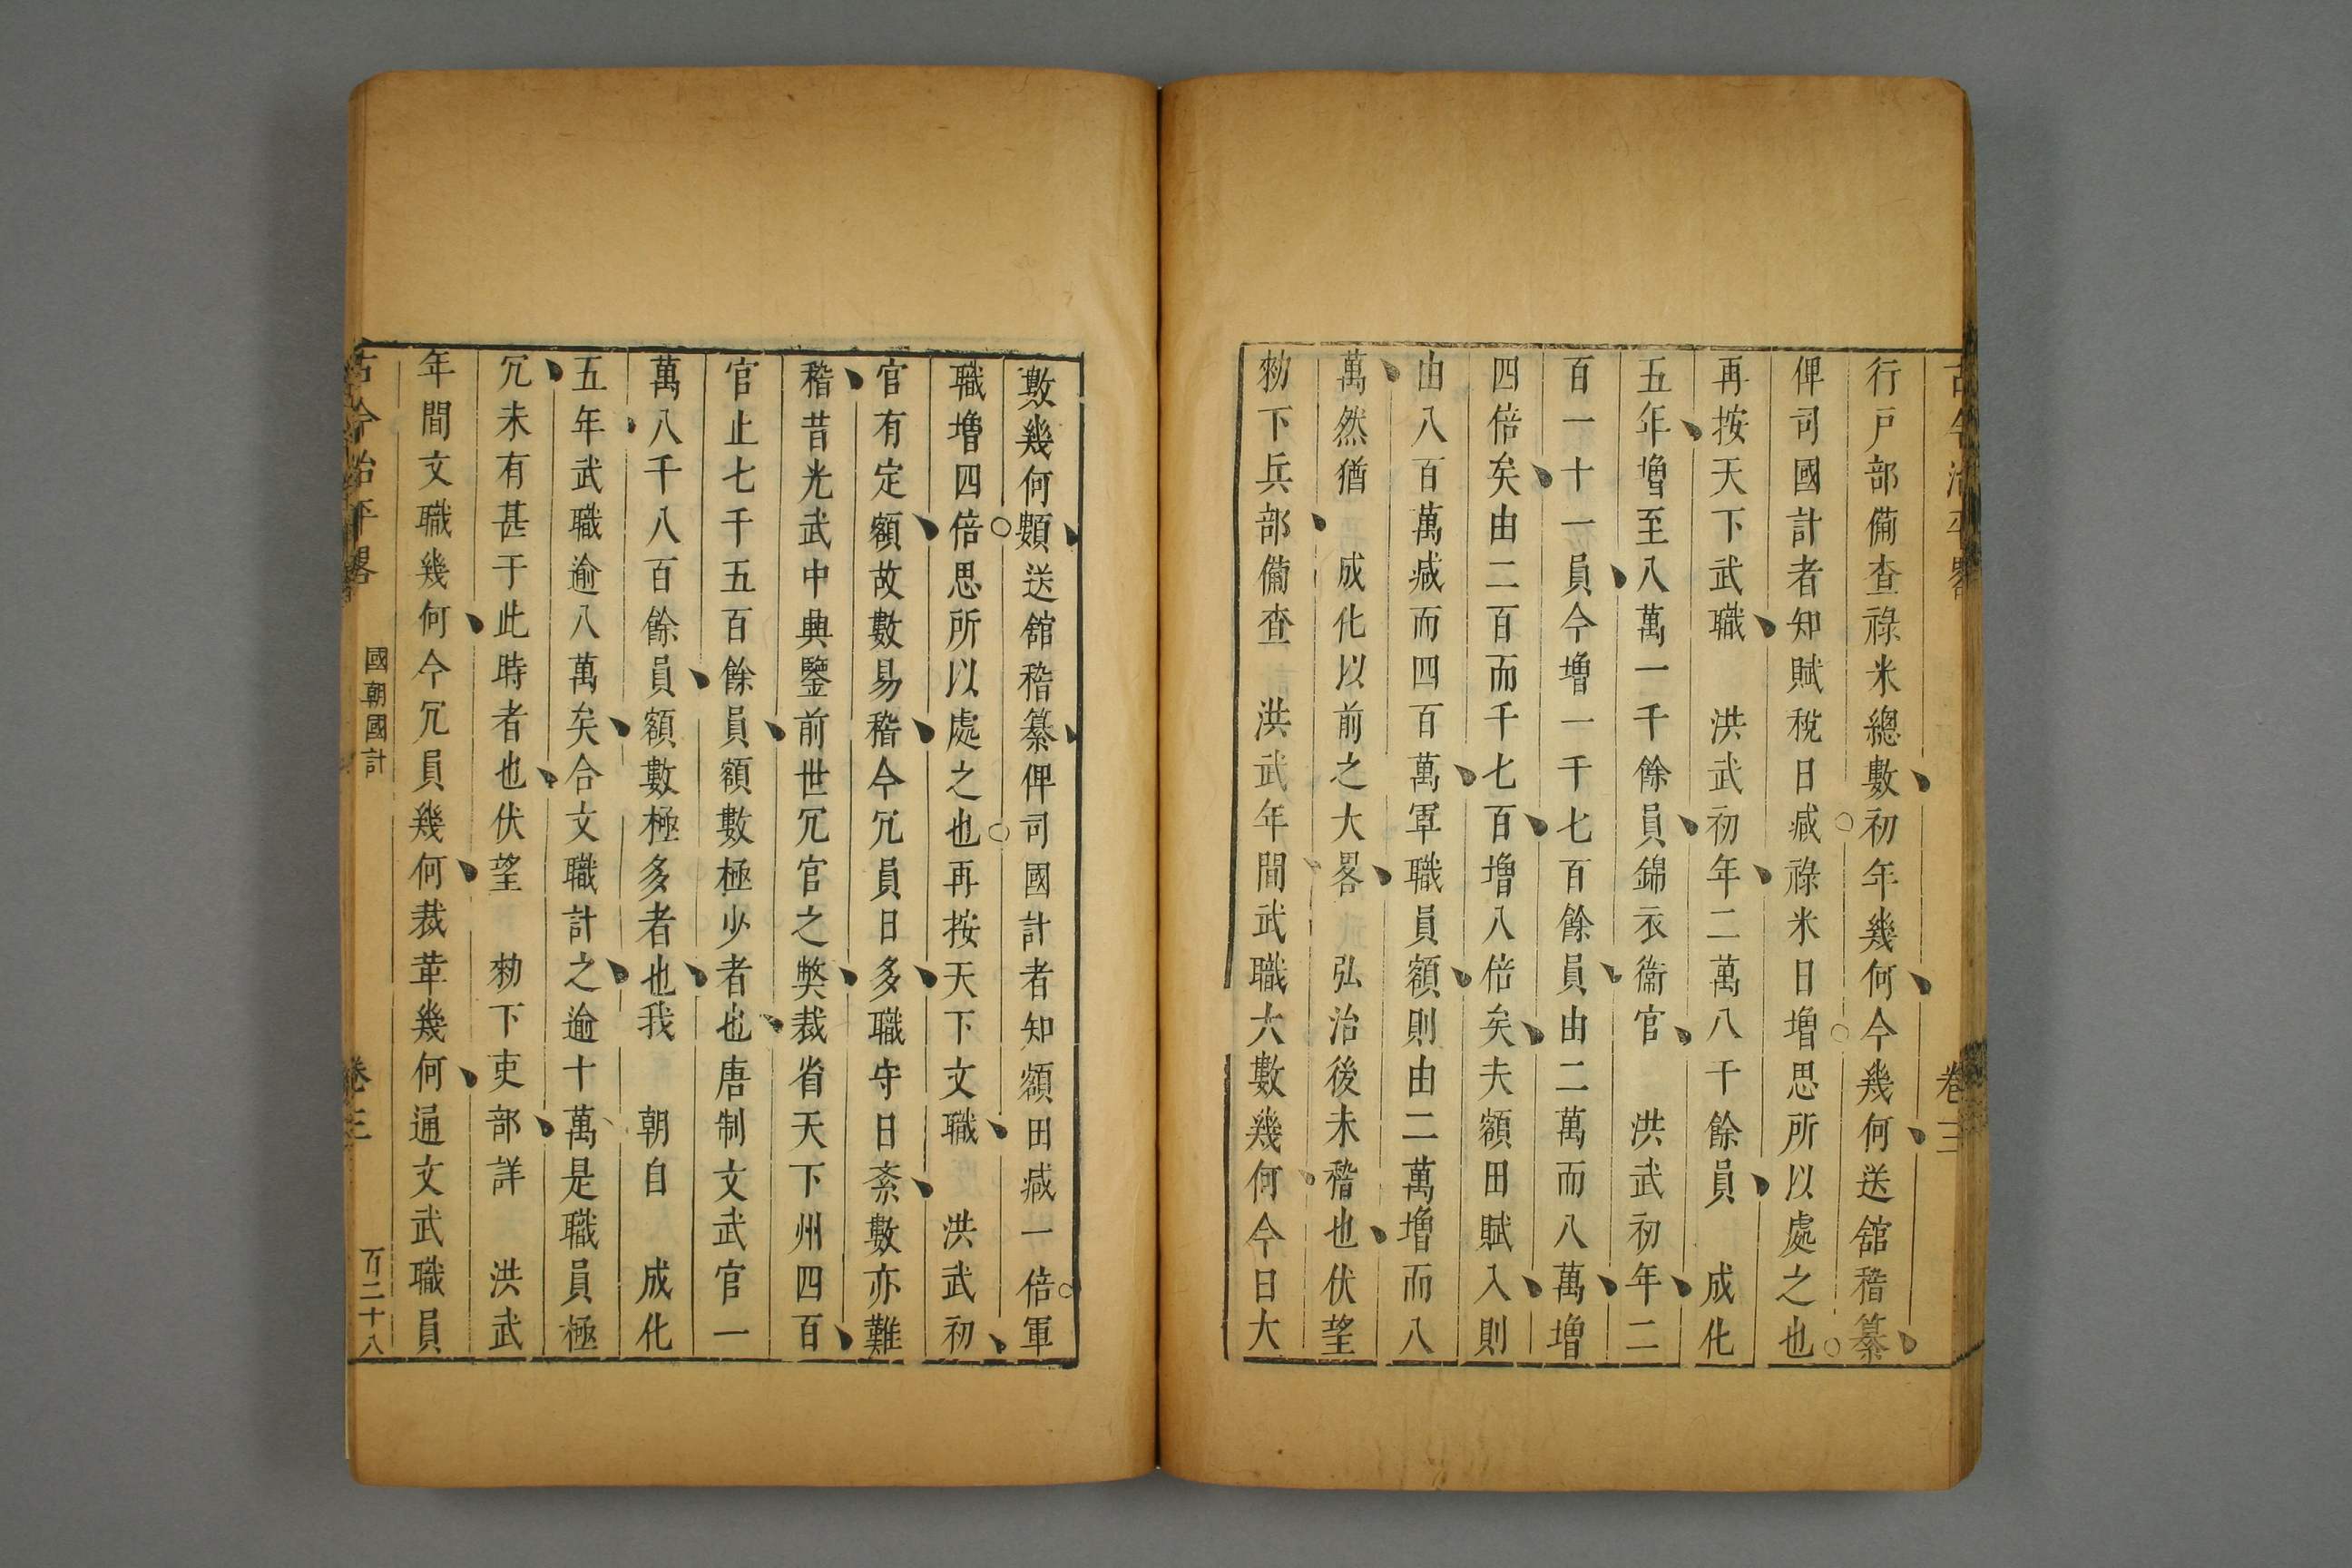 古今治平畧 卷三
行戸部備查祿米總數初年幾何今幾何送舘稽纂
俾司國計者知賦稅日减祿米日增思所以處之也
再按天下武職 洪武初年二萬八千餘員 成化
五年增至八萬一千餘員錦衣衞官 洪武初年二
百一十一員今增一千七百餘員由二萬而八萬增
四倍矣由二百而千七百增八倍矣夫額田賦入則
由八百萬减而四百萬軍職員額則由二萬增而八
萬然猶 成化以前之大畧 弘治後未稽也伏望
勑下兵部備查 洪武年間武職大數幾何今日大
數幾何類送舘稽纂俾司國計者知額田减一倍軍
職增四倍思所以處之也再按天下文職 洪武初
官有定額故數易稽今冗員日多職守日紊數亦難
稽昔光武中興鑒前世冗官之弊裁省天下州四百
官止七千五百餘員額數極少者也唐制文武官一
萬八千八百餘員額數極多者也我 朝自 成化
五年武職逾八萬矣合文職計之逾十萬是職員極
冗未有甚于此時者也伏望 勑下吏部詳 洪武
年間文職幾何今冗員幾何裁革幾何通文武職員
古今治平畧 國朝國計 卷三 百二十八